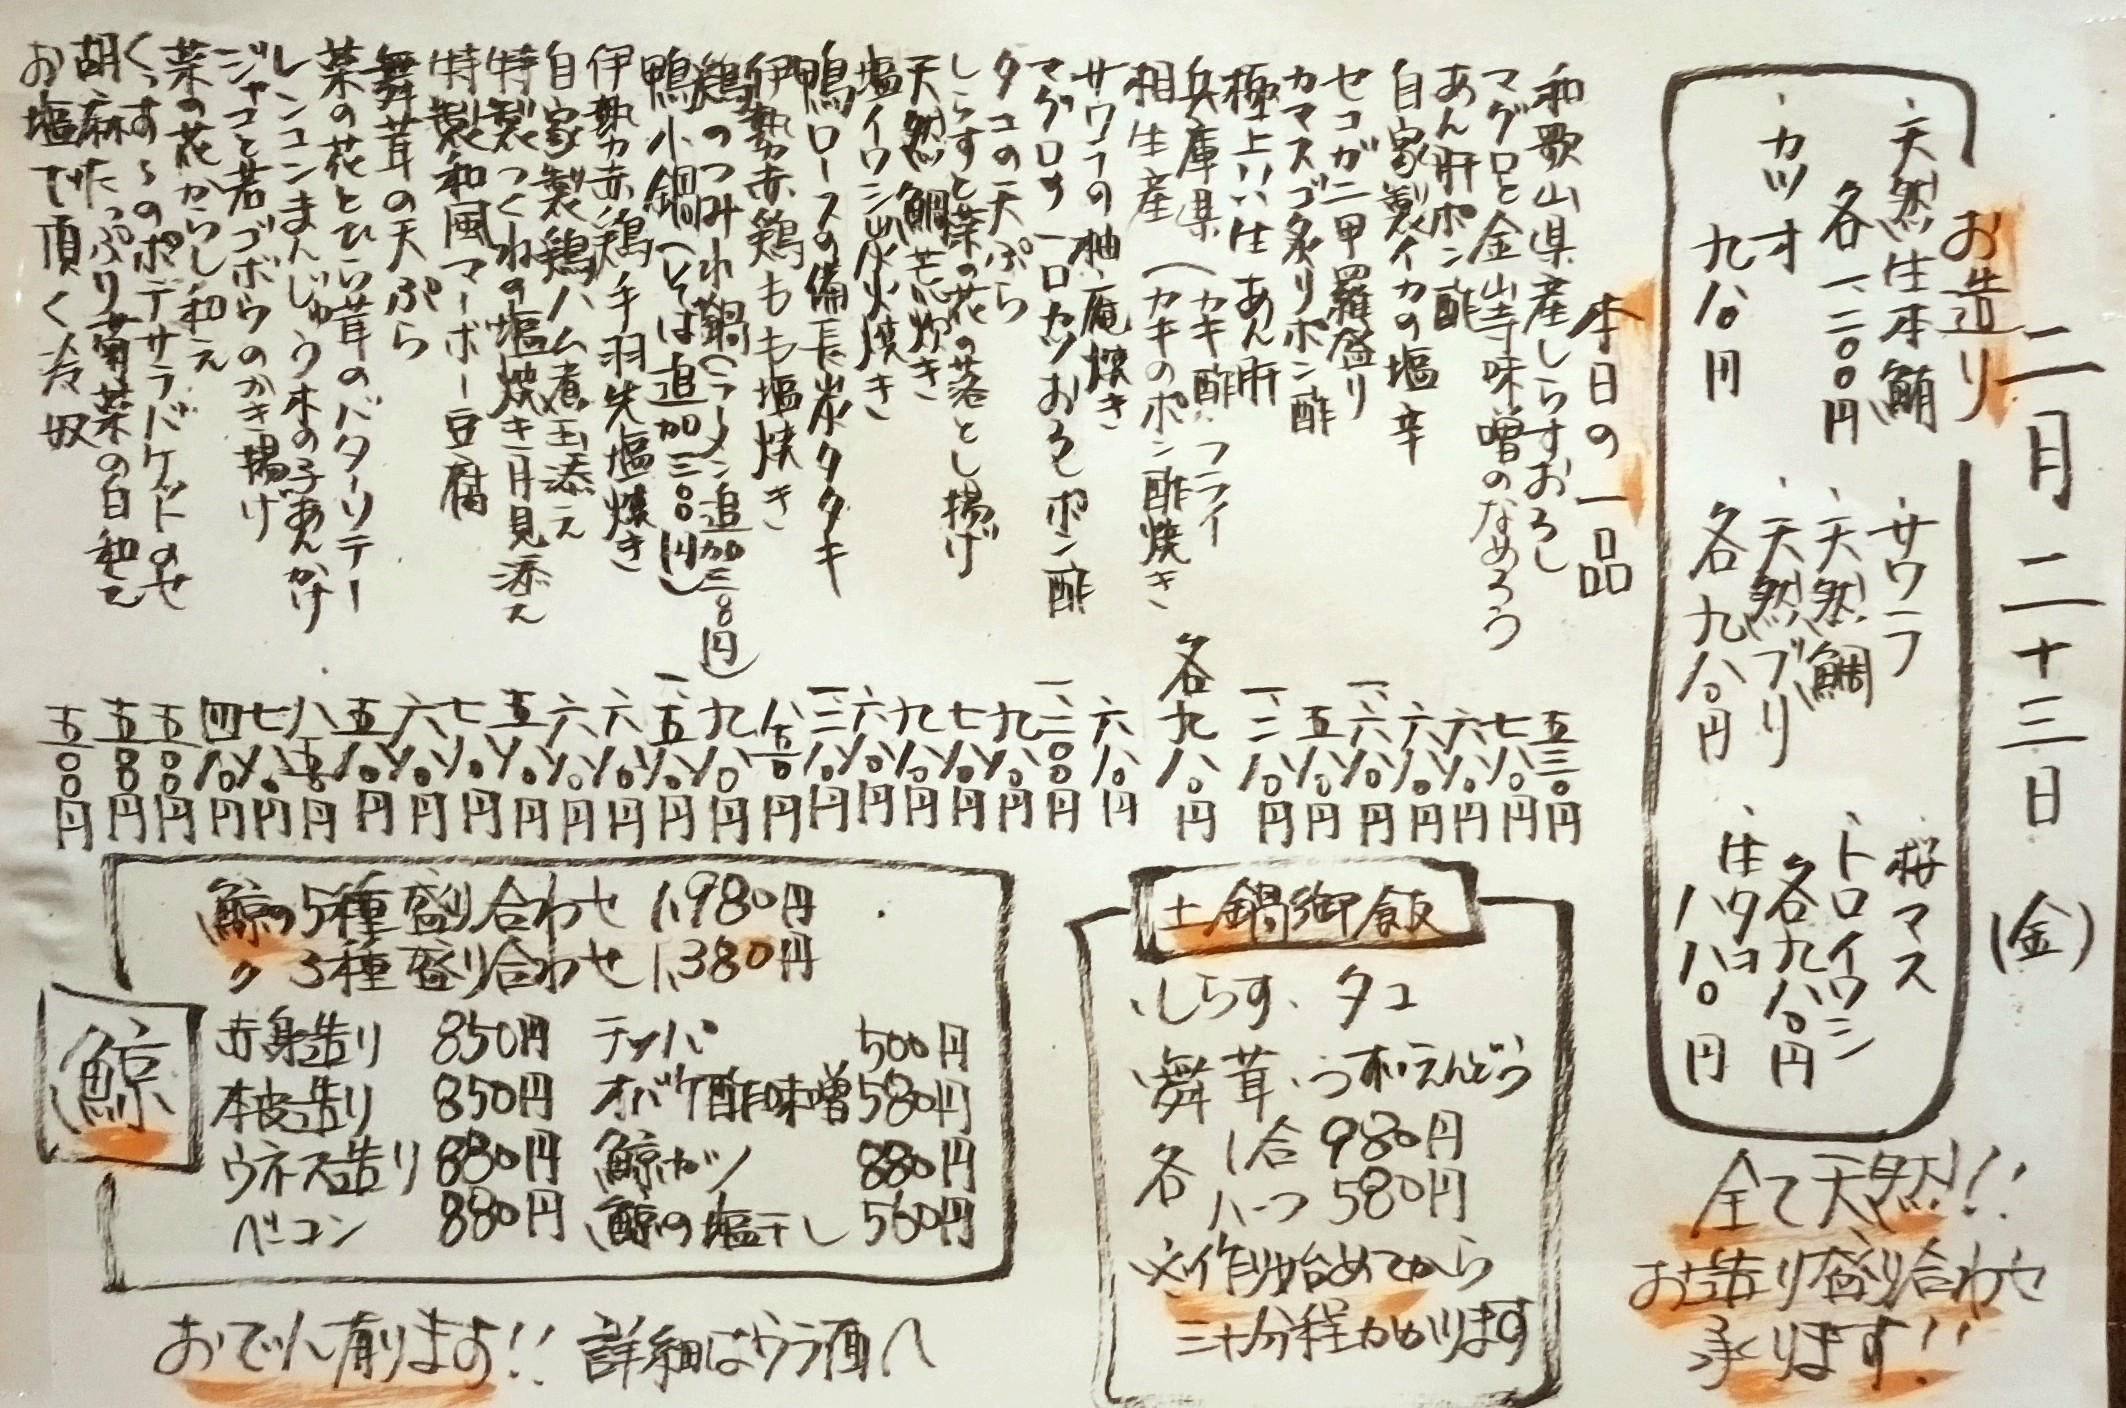 二月二十三日(金)
お造り
、天然生本鮪
各一、二〇〇円
、カツオ
九八〇円
、サワラ
、天然鯛
、天然ブリ
各九八〇円
、桜マス
、トロイワシ
各九八〇円
、生タコ
八八〇円
全て天然!!
お造り盛り合わせ
承ります!!
本日の一品
和歌山県産しらすおろし 五三〇円
マグロと金山寺味噌のなめろう 七八〇円
あん肝ポン酢 六八〇円
自家製イカの塩辛 六八〇円
セコガニ甲羅盛り 一、六八〇円
カマスゴ炙りポン酢 五八〇円
極上!!生あん肝 一、二八〇円
兵庫県(カキ酢、フライ
相生産(カキのポン酢焼き 各九八〇円
サワラの柚庵焼き 六八〇円
マグロの一口カツおろしポン酢 一、二〇〇円
タコの天ぷら 九八〇円
しらすと菜の花の落とし揚げ 七八〇円
天然鯛荒炊き 九八〇円
塩イワシ炭火焼き 六八〇円
鴨ロースの備長炭タタキ 一、二八〇円
伊勢赤鶏もも塩焼き 八五〇円
鶏のつみれ鍋(ラーメン追加三〇〇円) 九八〇円
鴨小鍋(そば追加三〇〇円) 一、五八〇円
伊勢赤鶏手羽先塩焼き 六八〇円
自家製鶏ハム煮玉添え 六八〇円
特製つくねの塩焼き月見添え 五八〇円
特製和風マーボー豆腐 七八〇円
舞茸の天ぷら 六八〇円
菜の花とひら茸のバターソテー 五八〇円
レンコンまんじゅう木の子あんかけ 八五〇円
ジャコと若ゴボウのかき揚げ 七八〇円
菜の花からし和え 四八〇円
くっすぅのポテサラバケットのせ 五〇〇円
胡麻たっぷり菊菜の白和え 五〇〇円
お塩で頂く冷奴 五〇〇円
土鍋御飯
、しらす、タコ
、舞茸、うすいえんどう
各 1合 980円
ハーフ 580円
※作り始めてから
三十分程かかります
鯨
鯨の5種盛り合わせ 1,980円
〃 3種盛り合わせ 1,380円
赤身造り 850円 テッパ 500円
本皮造り 850円 オバケ酢味噌 580円
ウネス造り 880円 鯨カツ 880円
ベーコン 880円 鯨の塩干し 560円
おでん有ります!! 詳細はウラ面へ